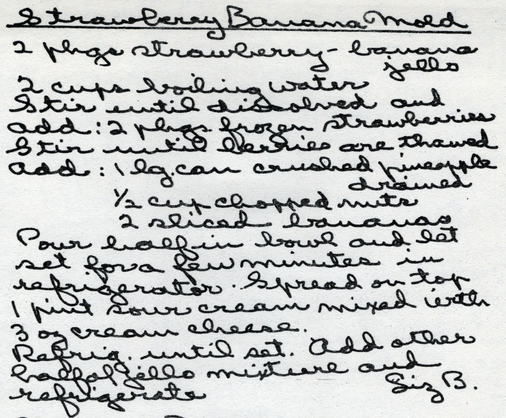 Strawberry Banana Mold
2 pkgs strawberry-banana
jello
2 cups boiling water
Stir until dissolved and
add: 2 pkgs frozen strawberries
Stir until berries are thawed
add: 1 lg. can crushed pineapple
drained
1/2 cup chopped nuts
2 sliced bananas
Pour half in bowl and let
set for a few minutes in
refrigerator. Spread on top
1 pint sour cream mixed with
3 oz cream cheese.
Refrig. until set. Add other
half of jello mixture and
refrigerate
Liz B.